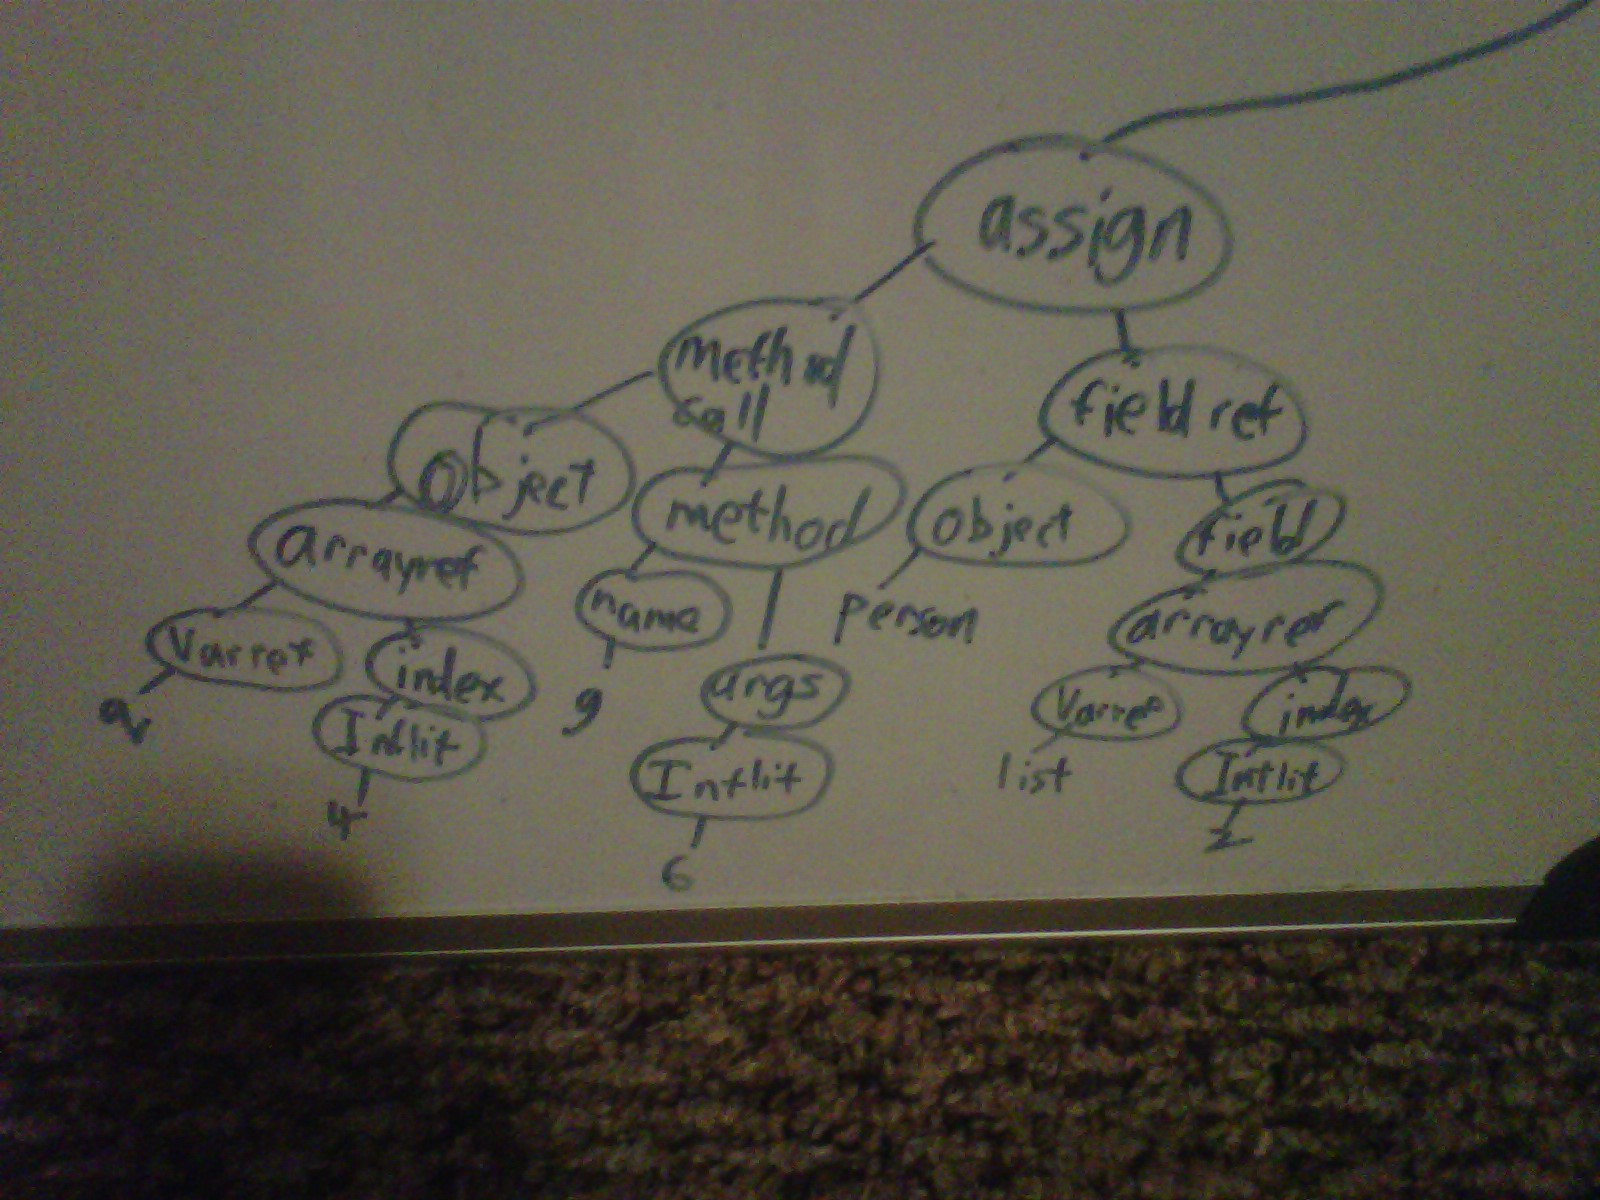 assign
method
call
field ref
object
method
object
field
arrayref
name
person
arrayref
Varref
index
args
Varref
index
Intlit
Intlit
list
Intlit
4
6
2